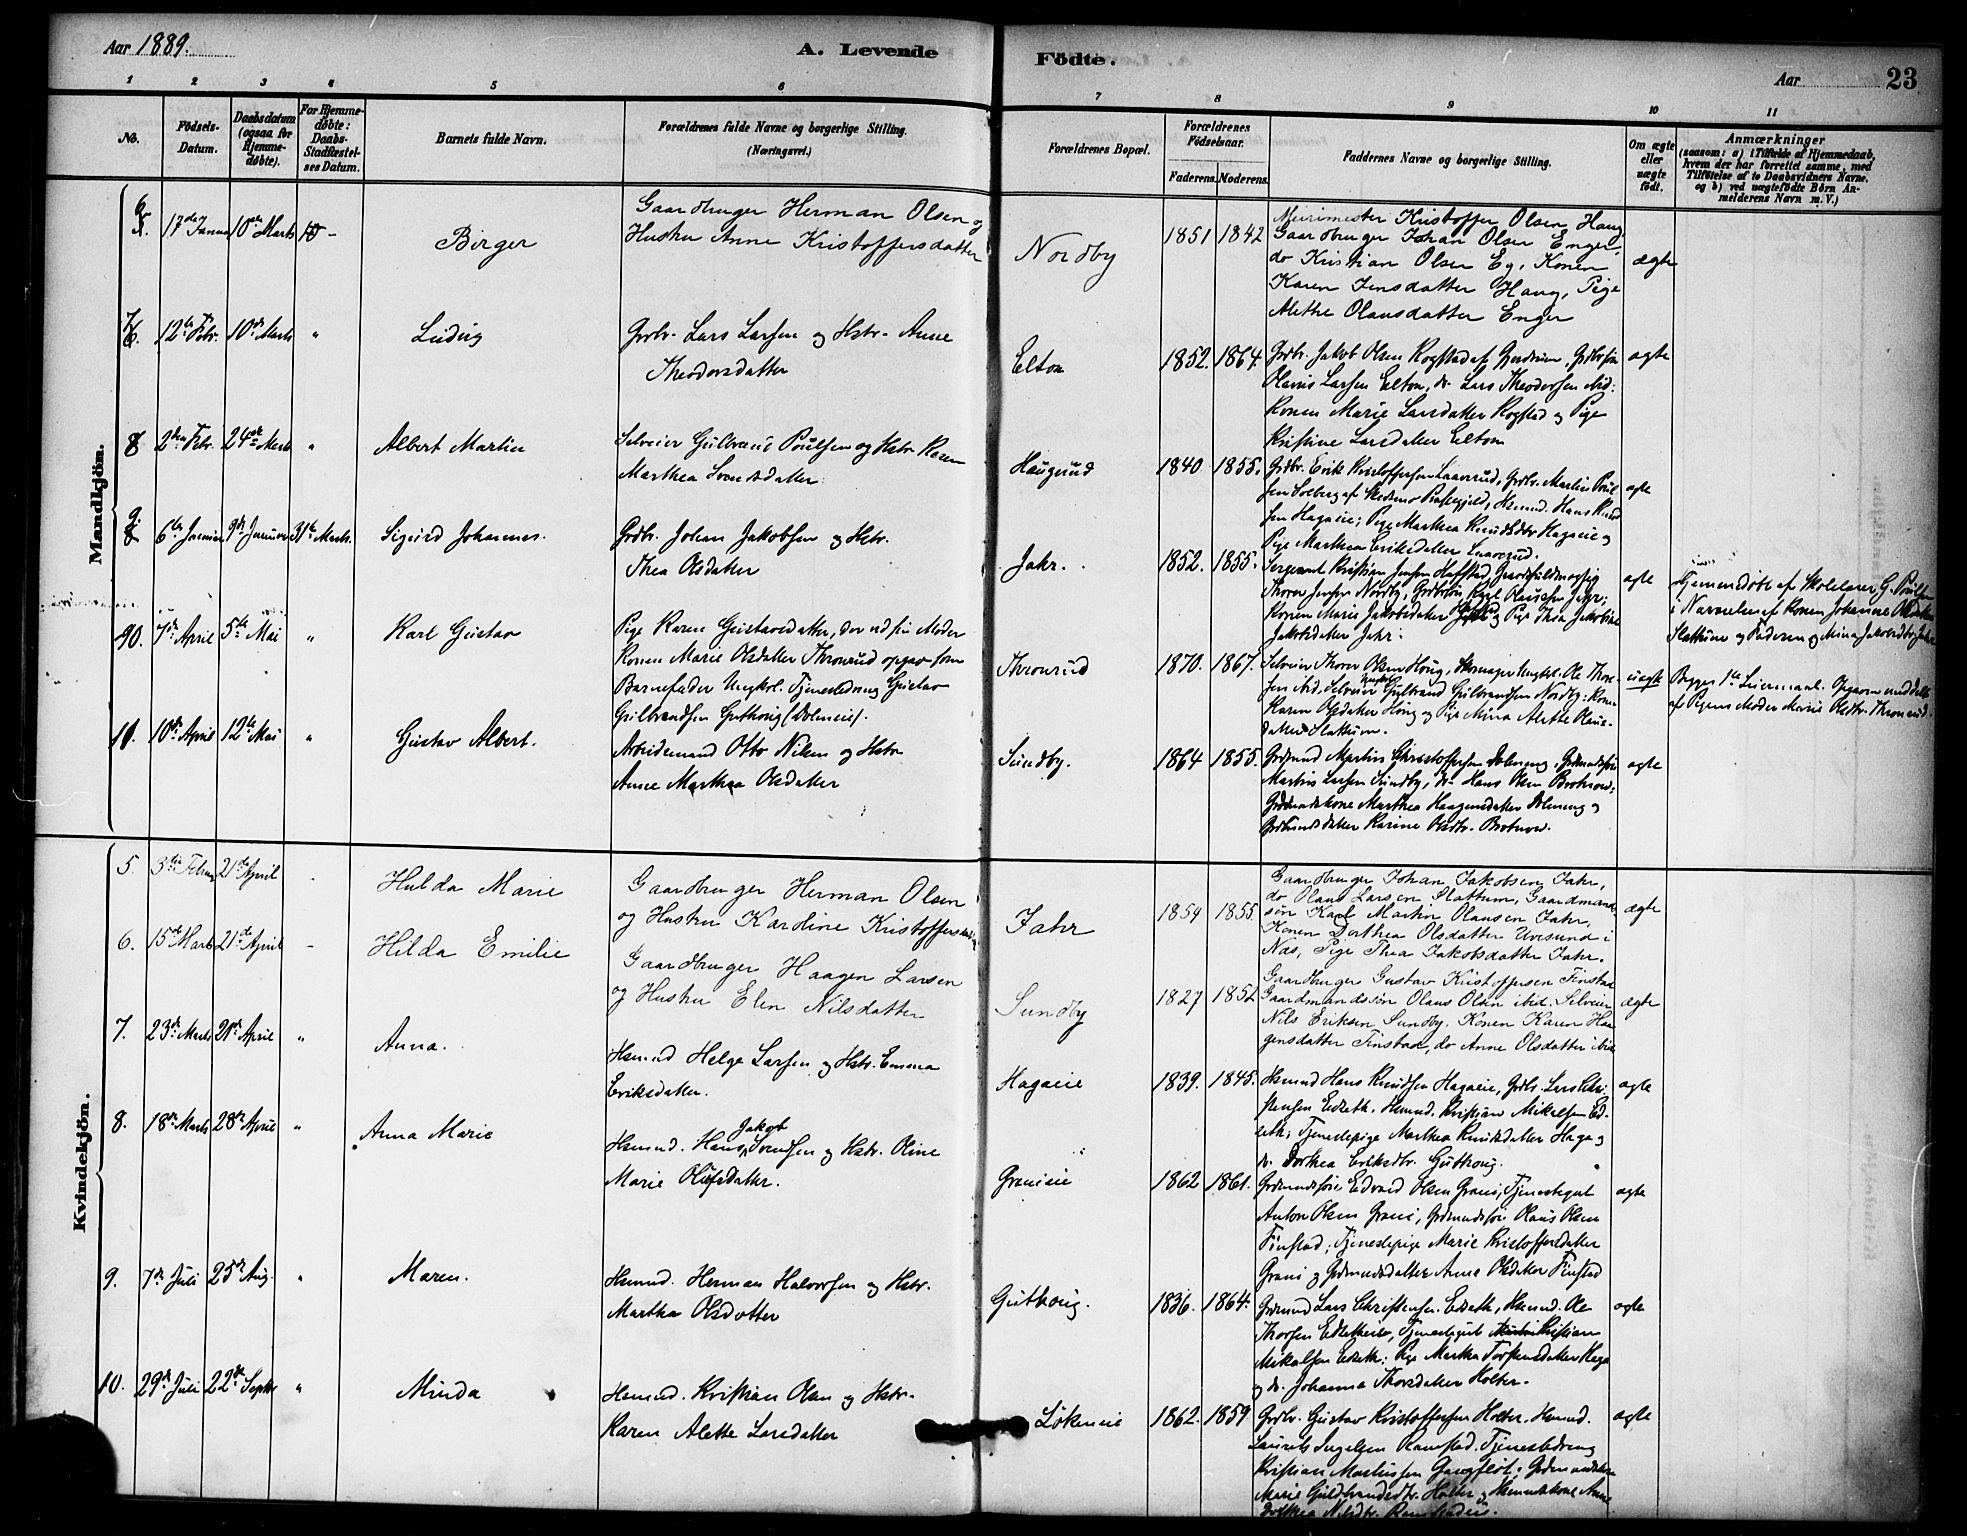 Aar 1889.
A. Levende
Födte.
Aar
23
1 2 3 4 5 6
7 8 9 10 11
No.
Födsels-Datum.
Daabsdatum (ogsaa for Hjemme-döbte).
For Hjemme-döbte: Daabs-Stadfæstel-ses Datum.
Barnets fulde Navn.
Forældrenes fulde Navne og borgerlige Stilling.
(Næringsvei.)
Forældrenes Bopæl.
Forældrenes Födselsaar.
Faderens. Moderens.
Faddernes Navne og borgerlige Stilling.
Om ægte eller uægte födt.
Anmærkninger
(saasom: a) i Tilfælde af Hjemmedaab,
hvem der har forrettet samme, med
Tilföielse af to Daabsvidners Navne,
og b) ved uægtefödte Börn An-
melderens Navn m. V.)
Mandkjön.
6. 17de Januar 10de Marts
Birger
Gaardbruger Herman Olsen og
Hustru Anne Kristoffersdatter
Nordby
1851 1842
Murmester Kristoffer Olsen Haug
Gaardbruger Johan Olsen Enger,
do Kristian Olsen Eg, Konen
Karen Jensdatter Haug, Pige
Alethe Olausdatter Enger
ægte
7. 12te Febr. 10de Marts "
Ludvig
Grdbr. Lars Larsen og Hstr. Anne
Theodorsdatter
Elton
1852. 1864.
Grdbr. Jakob Olsen Rogstad af Gjerdrum, Grdbrsøn
Olavus Larsen Elton, do Lars Theodorsen ibid:
Konen Marie Larsdatter Rogstad og Pige
Kristine Larsdatter Elton
ægte
8 2den Febr. 24de Marts "
Albert Martin
Selveier Gulbrand Poulsen og Hstr. Karen
Marthea Svendsdatter
Haugerud
1840 1855.
Grdbr. Erik Kristoffersen Laaverud, Grdbr. Martin Poul-
sen Solberg af Skedsmo Præstegjeld, Hsmnd. Hans Knud-
sen Hagaeie; Pige Marthea Knudsdtr Hagaeie og
Pige Marthea Eriksdatter Laaverud.
ægte
9. 6te Januar 9de Januar 31te Marts.
Sigurd Johannes.
Grdbr. Johan Jakobsen og Hstr.
Thea Olsdatter
Jahr.
1852. 1855.
Sergeant Kristian Jensen Hafstad, Gaardsfuldmægtig
Thorer Jensen Nordby, Grdbrsøn Karl Olausen Jahr;
Konen Marie Jakobsdatter og Pige Thea Jakobine
Jakobsdatter Jahr.
ægte
Hjemmedøbt af Skolelærer G. Poulsen
i Nærværelse af Konen Johanne Olsdatter
Slattum og Faderen og Mina Jakobsdtr. Jahr
10. 7de April 5te Mai "
Karl Gustav
Pige Karen Gustavsdatter, der ved sin Moder
Konen Marie Olsdatter Thronrud opgav som
Barnefader Ungkrl. Tjenestedreng Gustav
Gulbrandsen Gutthoug (Dolmeie).
Thronrud
1870. 1867.
Selveier Thorer Olsen Houg, Skomager Ungkrl. Ole Thore-
sen ibid, Selveier Gulbrand Gulbrandsen Nordby: Konen
Karen Olsdatter Houg og Pige Mina Alette Olaus-
datter Slattum.
uægte
Begges 1ste Leiermaal. Opgaven meddelt
af Pigens Moder Marie Olsdtr. Thronrud.
11. 10de April 12te Mai "
Gustav Albert.
Arbeidsmand Otto Nilsen og Hstr
Anne Marthea Olsdatter
Sundby.
1864 1855.
Grdmnd Martin Christoffersen Dolmeng, Grdmndssøn
Martin Larsen Sundby, do Hans Olsen Brotnov;
Grdmndskone Marthea Haagensdatter Dolmeng og
Grdmndsdatter Karine Olsdtr. Brotnov.
ægte
Kvindekjön.
5. 3die Februar 21de April
Hulda Marie
Gaardbruger Herman Olsen
og Hustru Karoline Kristoffersdatter
Jahr
1854 1855.
Gaardbruger Johan Jakobsen Jahr,
do Olaus Larsen Slattum, Gaardmands-
søn Karl Martin Olausen Jahr,
Konen Dorthea Olsdatter Uvesund i
Næs, Pige Thea Jakobsdatter Jahr.
ægte
6. 15de Marts 21de April -
Hilda Emilie
Gaardbruger Haagen Larsen
og Hustru Elen Nilsdatter
Sundby
1827 1852
Gaardbruger Gustav Kristoffersen Finstad
Gaardmandssøn Olaus Olsen ibid. Selveier
Nils Eriksen Sundby. Konen Karen Haa-
gensdatter Finstad, do Anne Olsdatter ibid
ægte
7. 23de Marts 21de April "
Anna.
Hsmnd Helge Larsen og Hstr. Emma
Eriksdatter.
Hagaeie
1839. 1845.
Hsmnd Hans Knudsen Hagaeie, Grdbr. Lars Chri-
stensen Edseth. Hsmnd. Kristian Mikalsen Ed-
seth; Tjenestepige Marthea Knudsdatter Haga og
do. Dorthea Eriksdtr. Gutthoug.
ægte
8. 18de Marts 28de April "
Anna Marie
Hsmnd. Hans Jakob Svendsen og Hstr. Oline
Marie Olufsdatter.
Granieie
1862 1861.
Grdmndssøn Edvard Olsen Grani, Tjenestegut
Anton Olsen Grani, Grdmndssøn Olaus Olsen
Finstad; Tjenestepige Marie Kristoffersdatter
Grani og Grdmndsdatter Anna Olsdatter Finstad
ægte
9. 7de Juli 25de Aug. "
Maren.
Hsmnd. Herman Halvorsen og Hstr.
Martha Olsdatter
Gutthoug.
1836. 1864.
Grdmnd Lars Christensen Edseth, Hsmnd. Ole
Thorsen Edsetheie, Tjenestegut Kristian
Mikalsen Edseth; Pige Martha Torstensdatter Haga
og do. Johanna Thorsdatter Holter.
ægte
10. 29de Juli 22de Septbr "
Minda
Hsmnd. Kristian Olsen og Hstr.
Karen Alette Larsdatter
Løkeneie
1862. 1859
Grdbr. Gustav Kristoffersen Holter. Hsmnd.
Laurits Ingelsen Ramstad. Tjenestedreng
Kristian Martinsen Gangfløt; Grdmandskone
Marie Guldbrandsdtr. Holter og Hsmndskone Anne
Dorthea Nilsdtr. Ramstadeie.
ægte